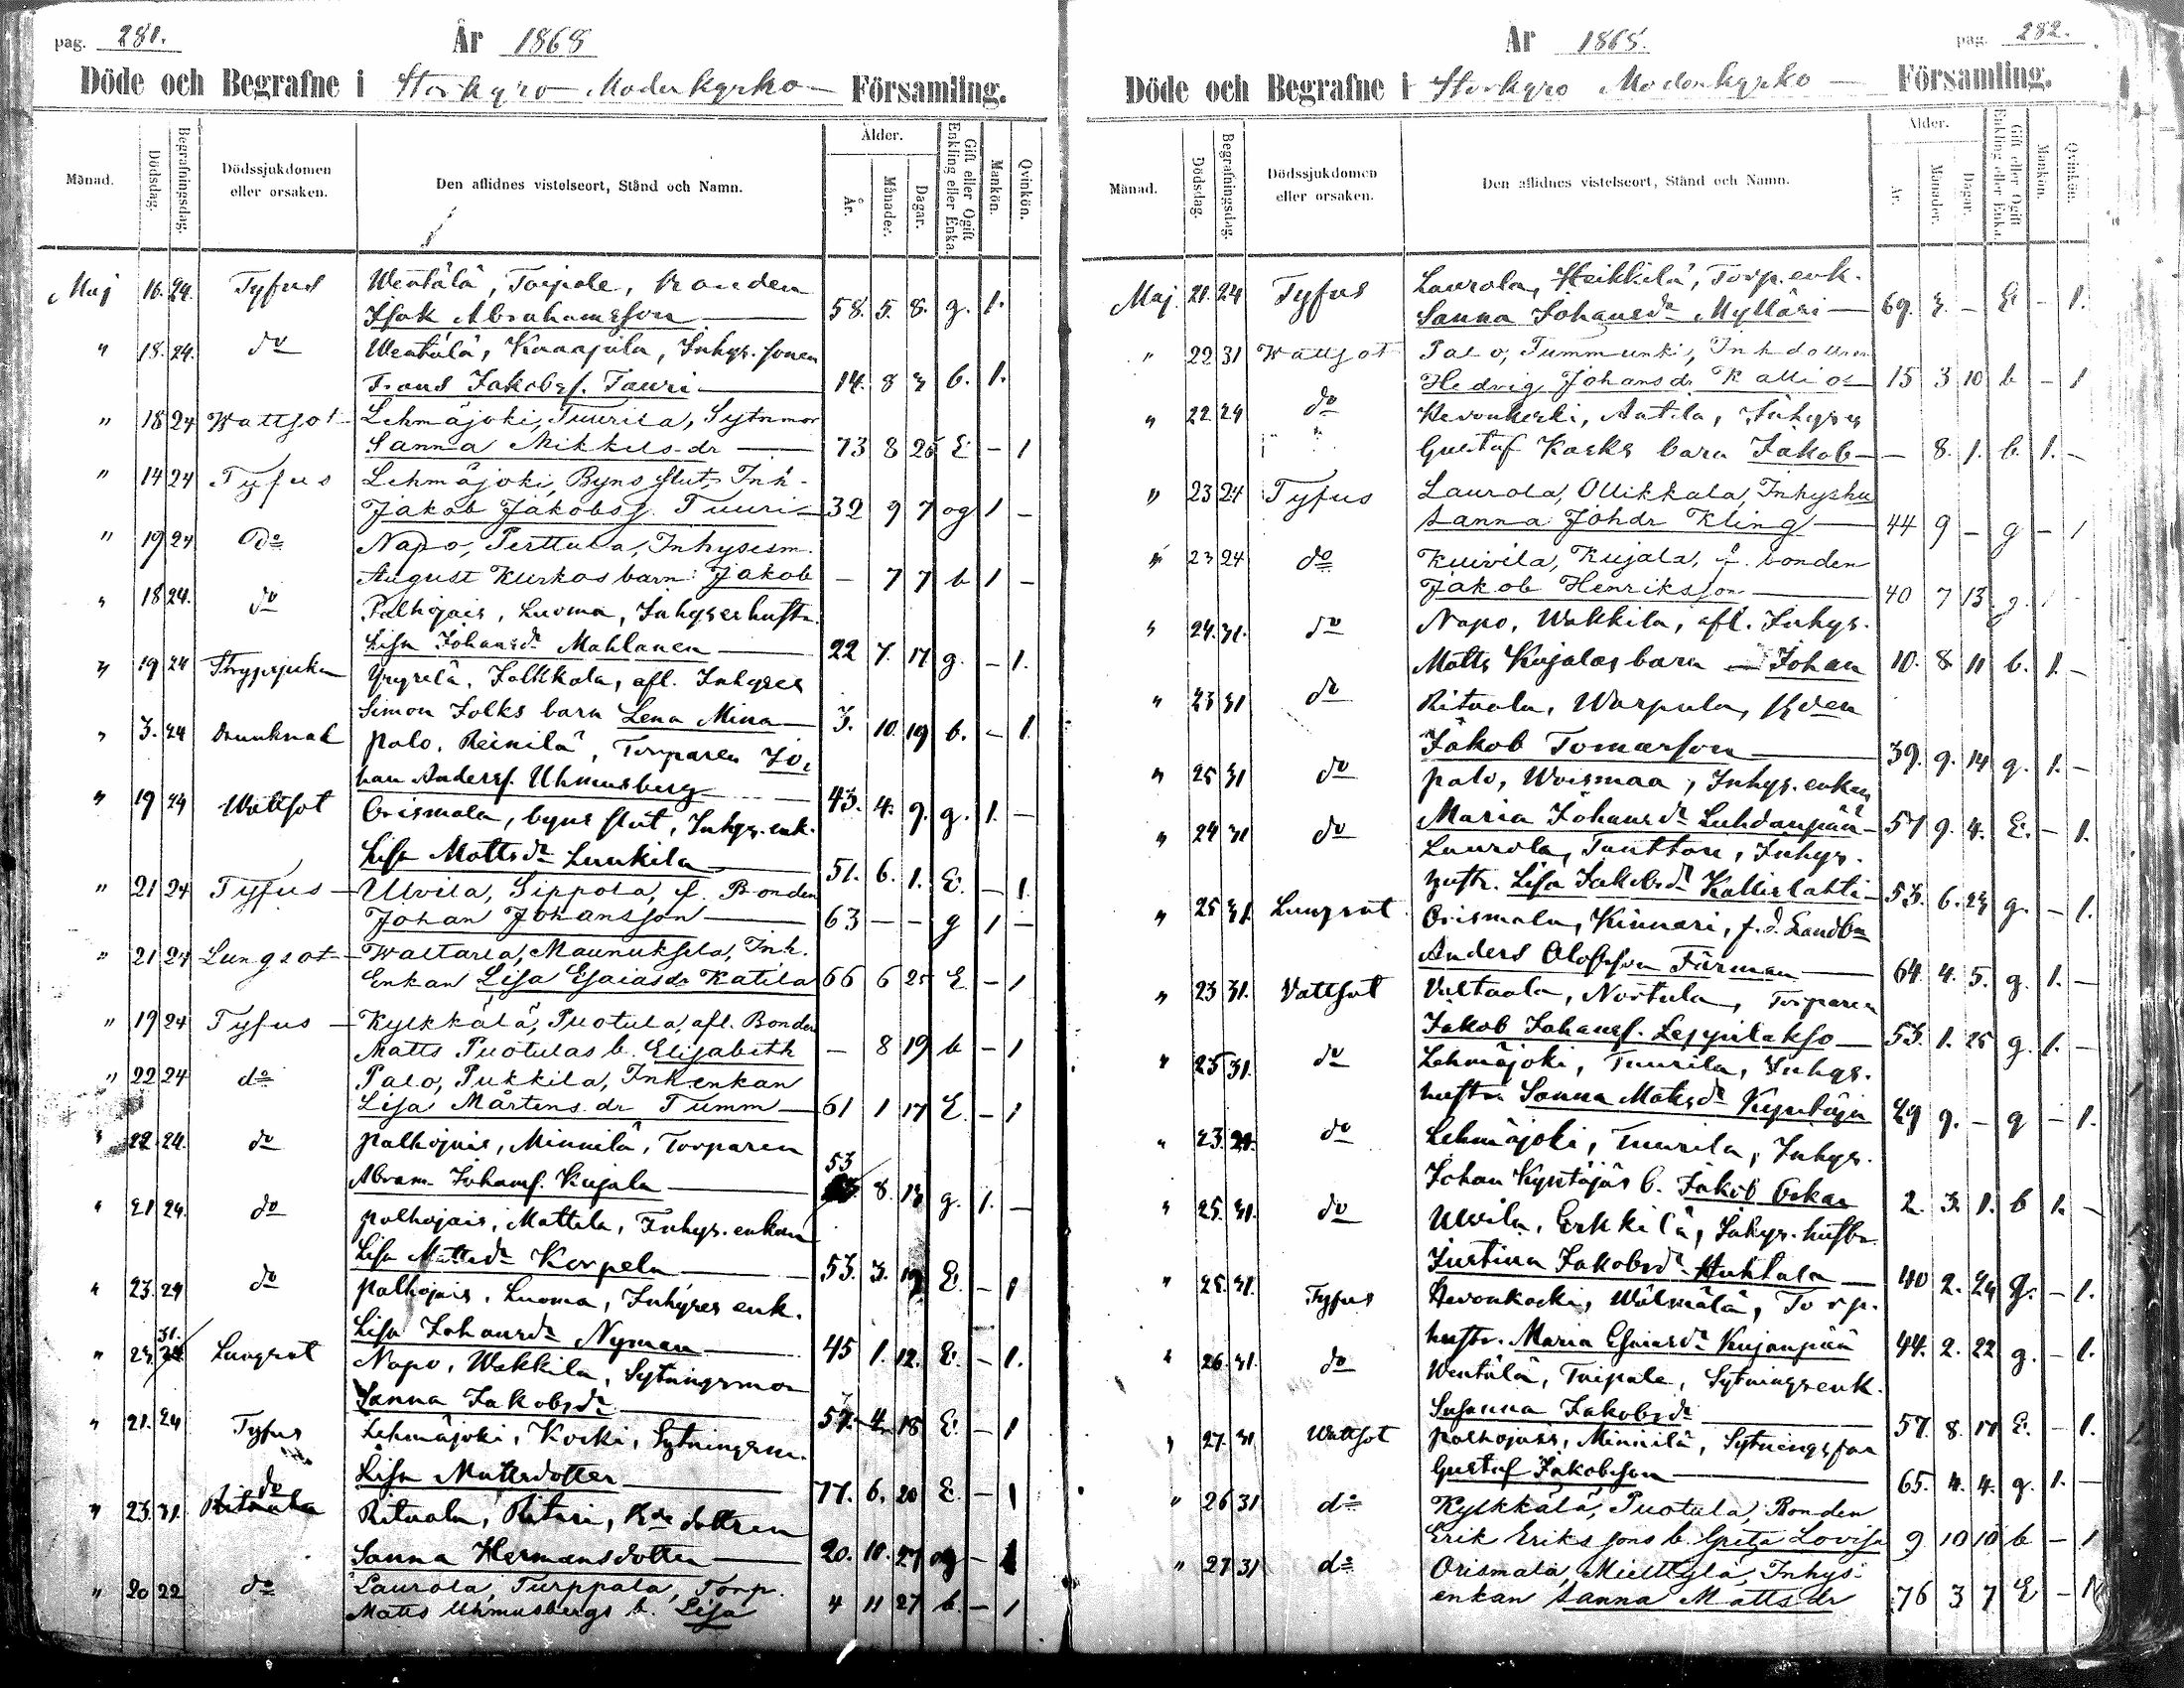 pag. 281.
År 1868
Döde och Begrafne i Storkyro Moderkyrko Församling.
Månad. Dödsdag. Begrafningsdag. Dödssjukdomen eller orsaken. Den aflidnes vistelseort, Stånd och Namn. Ålder. År. Månader. Dagar. Gift eller Ogift Enkling eller Enka. Mankön. Qvinkön.
Maj 16. 24. Tyfus Wentälä, Taipale, bonden
Isak Abrahamsson 58. 5. 8. g. 1.
" 18. 24. do Wentälä, Kaarjula, Inhys. sonen
Frans Jakobsf. Tauri 14. 8 3 b. 1.
" 18 24 Wattsot Lehmäjoki, Tuurila, Sytnmor
Sanna Mikkels dr 73 8 25 E - 1
" 14 24 Tyfus Lehmäjoki, Byns slut, Inh.
Jakob Jakobsf. Tuuri 32 9 7 og 1 -
" 19 24 do Napo, Perttula, Inhysesm.
August Kurkas barn: Jakob - 7 7 b 1 -
" 18 24. do Palhojais, Luoma, Inhyserhustr.
Lisa Johansdr Mahlanen 22 7. 17 g. - 1.
" 19 24 Strypsjukan Yryselä, Jolkkola, afl. Inhyses
Simon Jolks barn Lena Mina 3. 10. 19 b. - 1.
" 3. 24 Drunknad Palo, Reinilä, Torparen Jo,
han Andersf. Uhmusberg 43. 4. 9. g. 1. -
" 19 24 Wattsot Orismala, byns slut, Inhys. enk.
Lisa Mattsdr Luukila 51. 6. 1. E. - 1.
" 21 24 Tyfus Ulvila, Sippola, f. Bonden
Johan Johansson 63 - - g 1 -
" 21 24 Lungsot Waltaria, Maunuksela, Inh.
Enkan Lisa Esaiasdr Katila 66 6 25 E - 1
" 19 24 Tyfus Kylkkälä, Puotula, afl. Bonden
Matts Puotulas b. Elisabeth - 8 19 b - 1
" 22 24 do Palo, Pukkila, Inh. enkan
Lisa Mårtens dr Tumm 61 1 17 E - 1
" 22. 24. do Palhojais, Minnilä, Torparen
Abram Johansf. Kujala 53 8. 13 g. 1. -
" 21 24. do Palhojais, Mattila, Inhys. enkan
Lisa Mattsdr Korpela 53. 3. 19 E. - 1
" 23. 24 do Palhojais, Luoma, Inhyses enk.
Lisa Johansdr Nyman 45 1. 12. E. - 1.
" 23. 31. Lungsot Napo, Wakkila, Sytningsmor
Sanna Jakobsdr 57. 4. 18 E. - 1
" 21. 24 Tyfus Lehmäjoki, Koski, Sytningsm.
Lisa Mattsdotter 77. 6. 20 E. - 1
" 23. 31. do Rituala, Ritari, Bde dottren
Sanna Hermansdotter 20. 10. 27 og - 1
" 20 22 do Laurola, Turppala, Torp.
Matts Uhmusbergs b. Lisa 4 11 27 b. - 1
År 1868.
pag. 282.
Döde och Begrafne i Storkyro Moderkyrko Församling.
Månad. Dödsdag. Begrafningsdag. Dödssjukdomen eller orsaken. Den aflidnes vistelseort, Stånd och Namn. Ålder. År. Månader. Dagar. Gift eller Ogift Enkling eller Enka. Mankön. Qvinkön.
Maj. 21. 24 Tyfus Laurola, Heikkilä, Torp. enk.
Sanna Johansdr Mylläri 69. 3. - E - 1.
" 22 31 Wattsot Palo, Tummunki, Inh dottren
Hedvig Johans dr Kallios 15 3 10 b - 1
" 22. 24 do Hevonkoski, Antila, Inhyses
Gustaf Kosks barn Jakob - 8. 1. b. 1. -
" 23 24 Tyfus Laurola, Ollikkala, Inhyshu
Sanna Johdr Kling 44 9 - g - 1
" 23 24 do Kuivila, Kujala, f. bonden
Jakob Henriksson 40 7 13 g.
" 24. 31. do Napo, Wakkila, afl. Inhys.
Matts Kujalas barn Johan 10. 8 11 b. 1. -
" 23 31 do Rituala, Warpula, Bden
Jakob Tomasson 39. 9. 14 g. 1. -
" 25 31 do Palo, Woismaa, Inhys. enkan
Maria Johansdr Luhdanpää 57 9. 4. E. - 1.
" 24 31 do Laurola, Tanttari, Inhys.
hustr. Lisa Jakobsdr Kallislahti 53. 6. 23 g. - 1.
" 25 31. Lungsot Orismala, Kinnari, f.d. Landbn
Anders Olofsson Färman 64. 4. 5. g. 1. -
" 23 31. Vattsot Valtaala, Nortula, Torparen
Jakob Johansf. Leppilakso 53. 1. 25 g. 1. -
" 25 31. do Lehmäjoki, Tuurila, Inhys.
hustru Sanna Matsdr Kyntäjä 49 9. - g - 1.
" 23. 24. do Lehmäjoki, Tuurila, Inhys.
Johan Kyntäjäs b. Jakob Oskar 2. 3. 1. b 1. -
" 25. 31. do Ulvila, Erkkilä, Inhys. hustr.
Justina Jakobsdr Huhtala 40 2. 24 g. - 1.
" 25. 31. Tyfus Hevonkoski, Wälmälä, Torp.
hustr. Maria Esaiasdr Kujanpää 44. 2. 22 g. - 1.
" 26. 31. do Wentälä, Taipale, Sytningsenk.
Susanna Jakobsdr 57. 8. 17 E. - 1.
" 27. 31 Wattsot Palhojais, Minnilä, Sytningsfar
Gustaf Jakobsson 65. 4. 4. g. 1. -
" 26 31 do Kylkkälä, Puotula, Bonden
Erik Eriks sons b. Greta Lovisa 9 10 10 b - 1
" 27 31 do Orismala, Miettylä, Inhys.
enkan Sanna Matts dr 76 3 7 E - 1